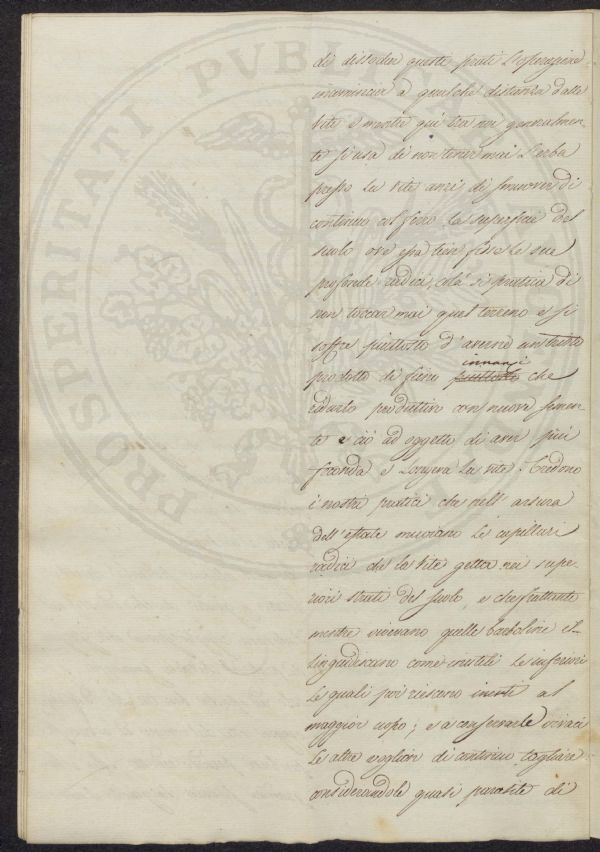 di dissoder questi prati l'asperggine
incomincia a qualche distanza dalle
vite e mentre qui tra noi generalmen-
te si usa di non tener mai l'erba
presso la vite anzi di smuover di
continuo col ferro la superficie del
suolo ove essa tien fisse le sue
profonde radici, colà si pratica di
non toccar mai quel terreno e si
soffre piuttosto d'averne un tristo
prodotto di fieno innanzi che
ridurlo produttivo con nuove semen-
te e ciò ad oggetto di aver più
feconda e longeva la vite. Credono
i nostri pratici che nell'arsura
dell'estate muoiano le capillari
radici che la vite getta nei supe-
riori strati del suolo, e che frattanto
mentre vivevano quelle barboline il-
languidiscano come inutili le inferiori
le quali poi riescano inetti al
maggior uopo; e a conservarle vivaci
le altre vogliono di continuo tagliare
considerandole quasi parasite di
PROSPERITATI PVBLICAE